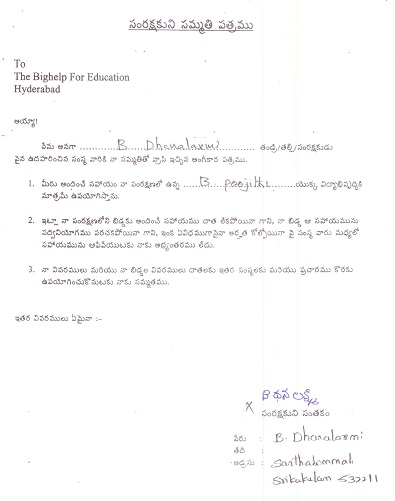 సంరక్షకుని సమ్మతి పత్రము
To
The Bighelp For Education
Hyderabad
అయ్యా!
నేను అనగా ............B. Dhanalaxmi............ తండ్రి/తల్లి/సంరక్షకుడు
పైన ఉదహరించిన సంస్థ వారికి నా సమ్మతితో వ్రాసి ఇచ్చిన అంగీకార పత్రము.
1. మీరు అందించే సహాయం నా సంరక్షణలో ఉన్న ......B poojitha......యొక్క విద్యాభివృద్ధికి
మాత్రమే ఉపయోగిస్తాను.
2. ఇట్లూ నా సంరక్షణలోని బిడ్డకు అందించే సహాయము దాత లేకపోయినా గాని, నా బిడ్డ ఆ సహాయమును
సద్వినియోగము పరచకపోయినా గాని, ఇంక ఏవిధముగానైనా అర్హత కోల్పోయినా పై సంస్థ వారు మధ్యలో
సహాయమును ఆపివేయుటకు నాకు అభ్యంతరము లేదు.
3. నా వివరములు మరియు నా బిడ్డల వివరములు దాతలకు ఇతర సంస్థలకు మరియు ప్రచారము కొరకు
ఉపయోగించుకొనుటకు నాకు సమ్మతము.
ఇతర వివరములు ఏమైనా :-
బి ధన లక్ష్మి
X సంరక్షకుని సంతకం
పేరు : B. Dhanalaxmi
తేది :
అడ్రసు : Santhakommali
Srikakulam 532211